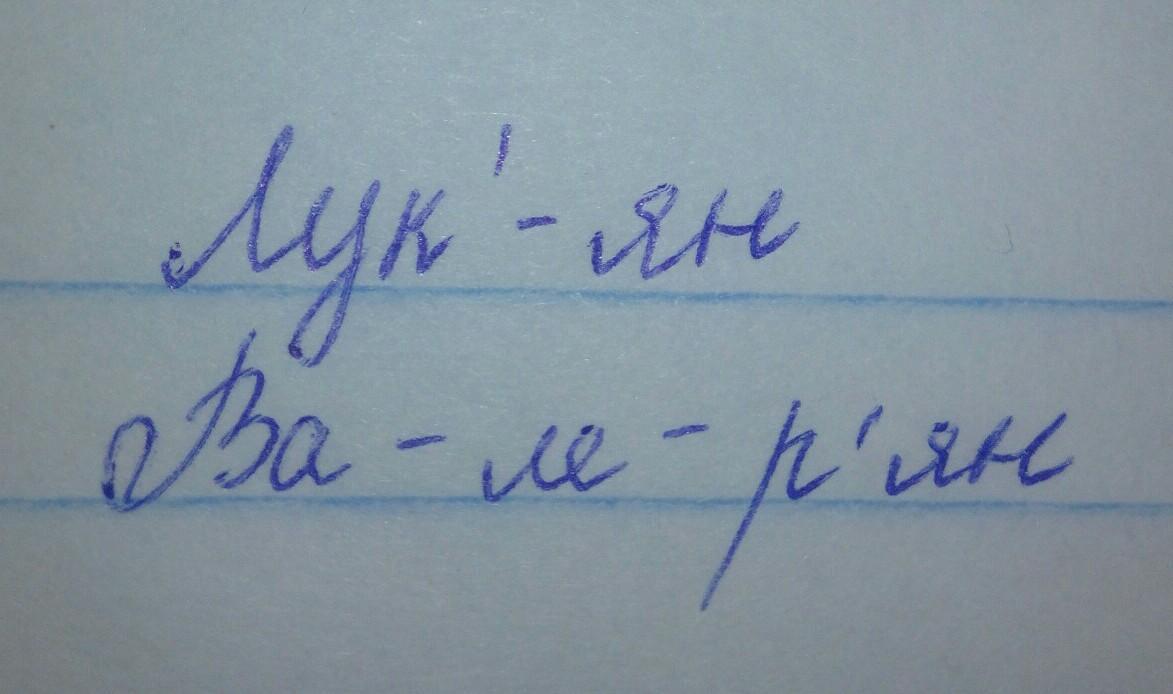 Лук'- ян
Ва - ле - р'ян